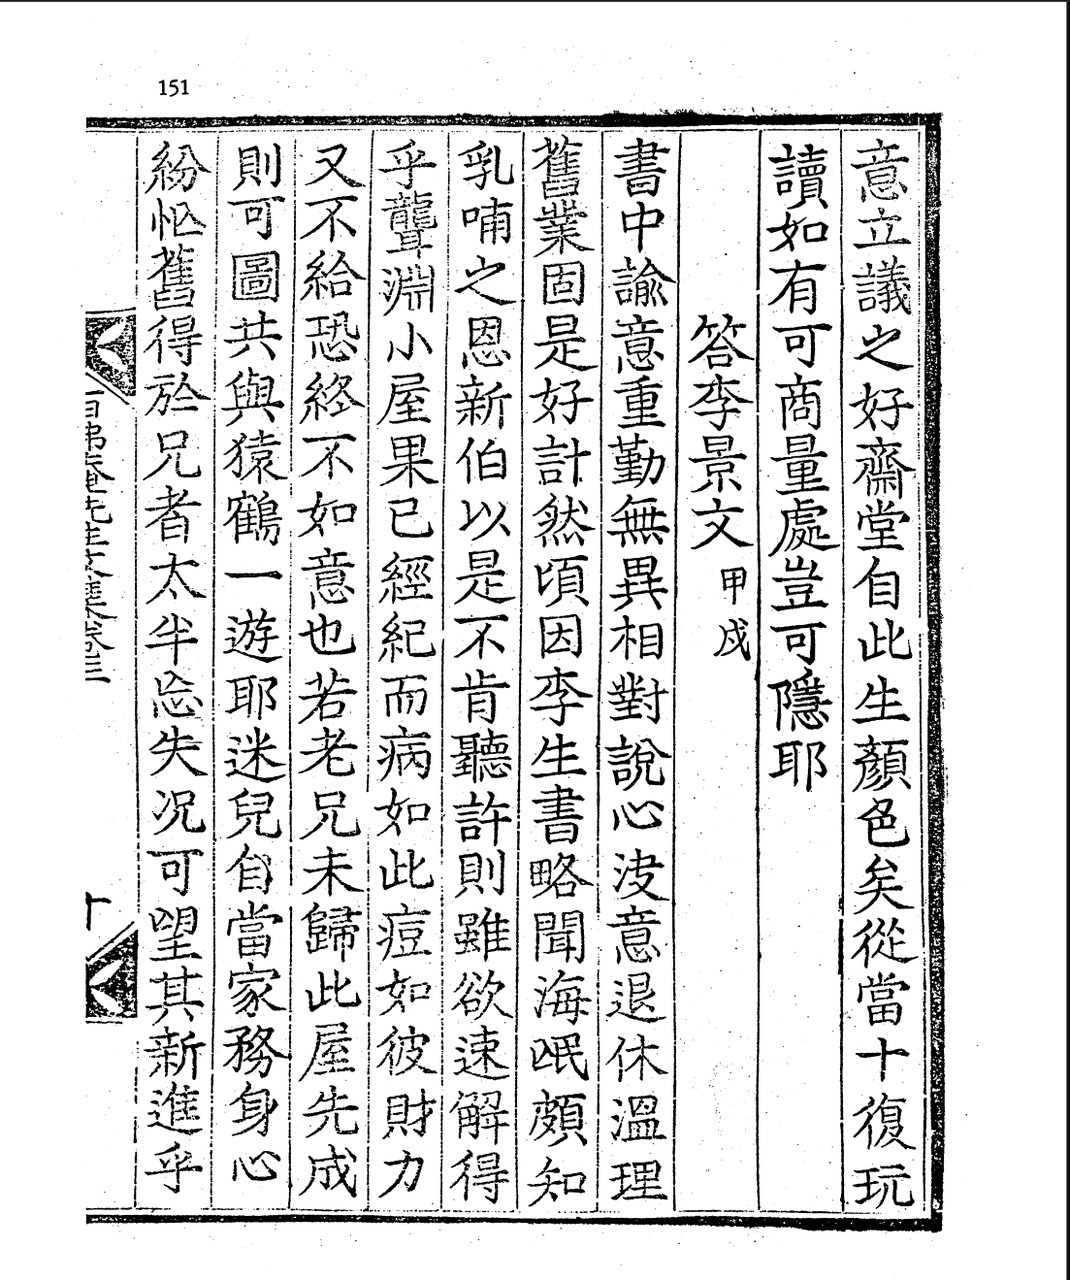 151
意立議之好齋堂自此生顏色矣從當十復玩
讀如有可商量處豈可隱耶
答李景文 甲戌
書中諭意重勤無異相對說心浚意退休溫理
舊業固是好計然頃因李生書略聞海氓頗知
乳哺之恩新伯以是不肯聽許則雖欲速解得
乎聾淵小屋果已經紀而病如此痘如彼財力
又不給恐終不如意也若老兄未歸此屋先成
則可圖共與猿鶴一遊耶迷兒自當家務身心
紛㤙舊得於兄者太半忘失况可望其新進乎
卷三
十